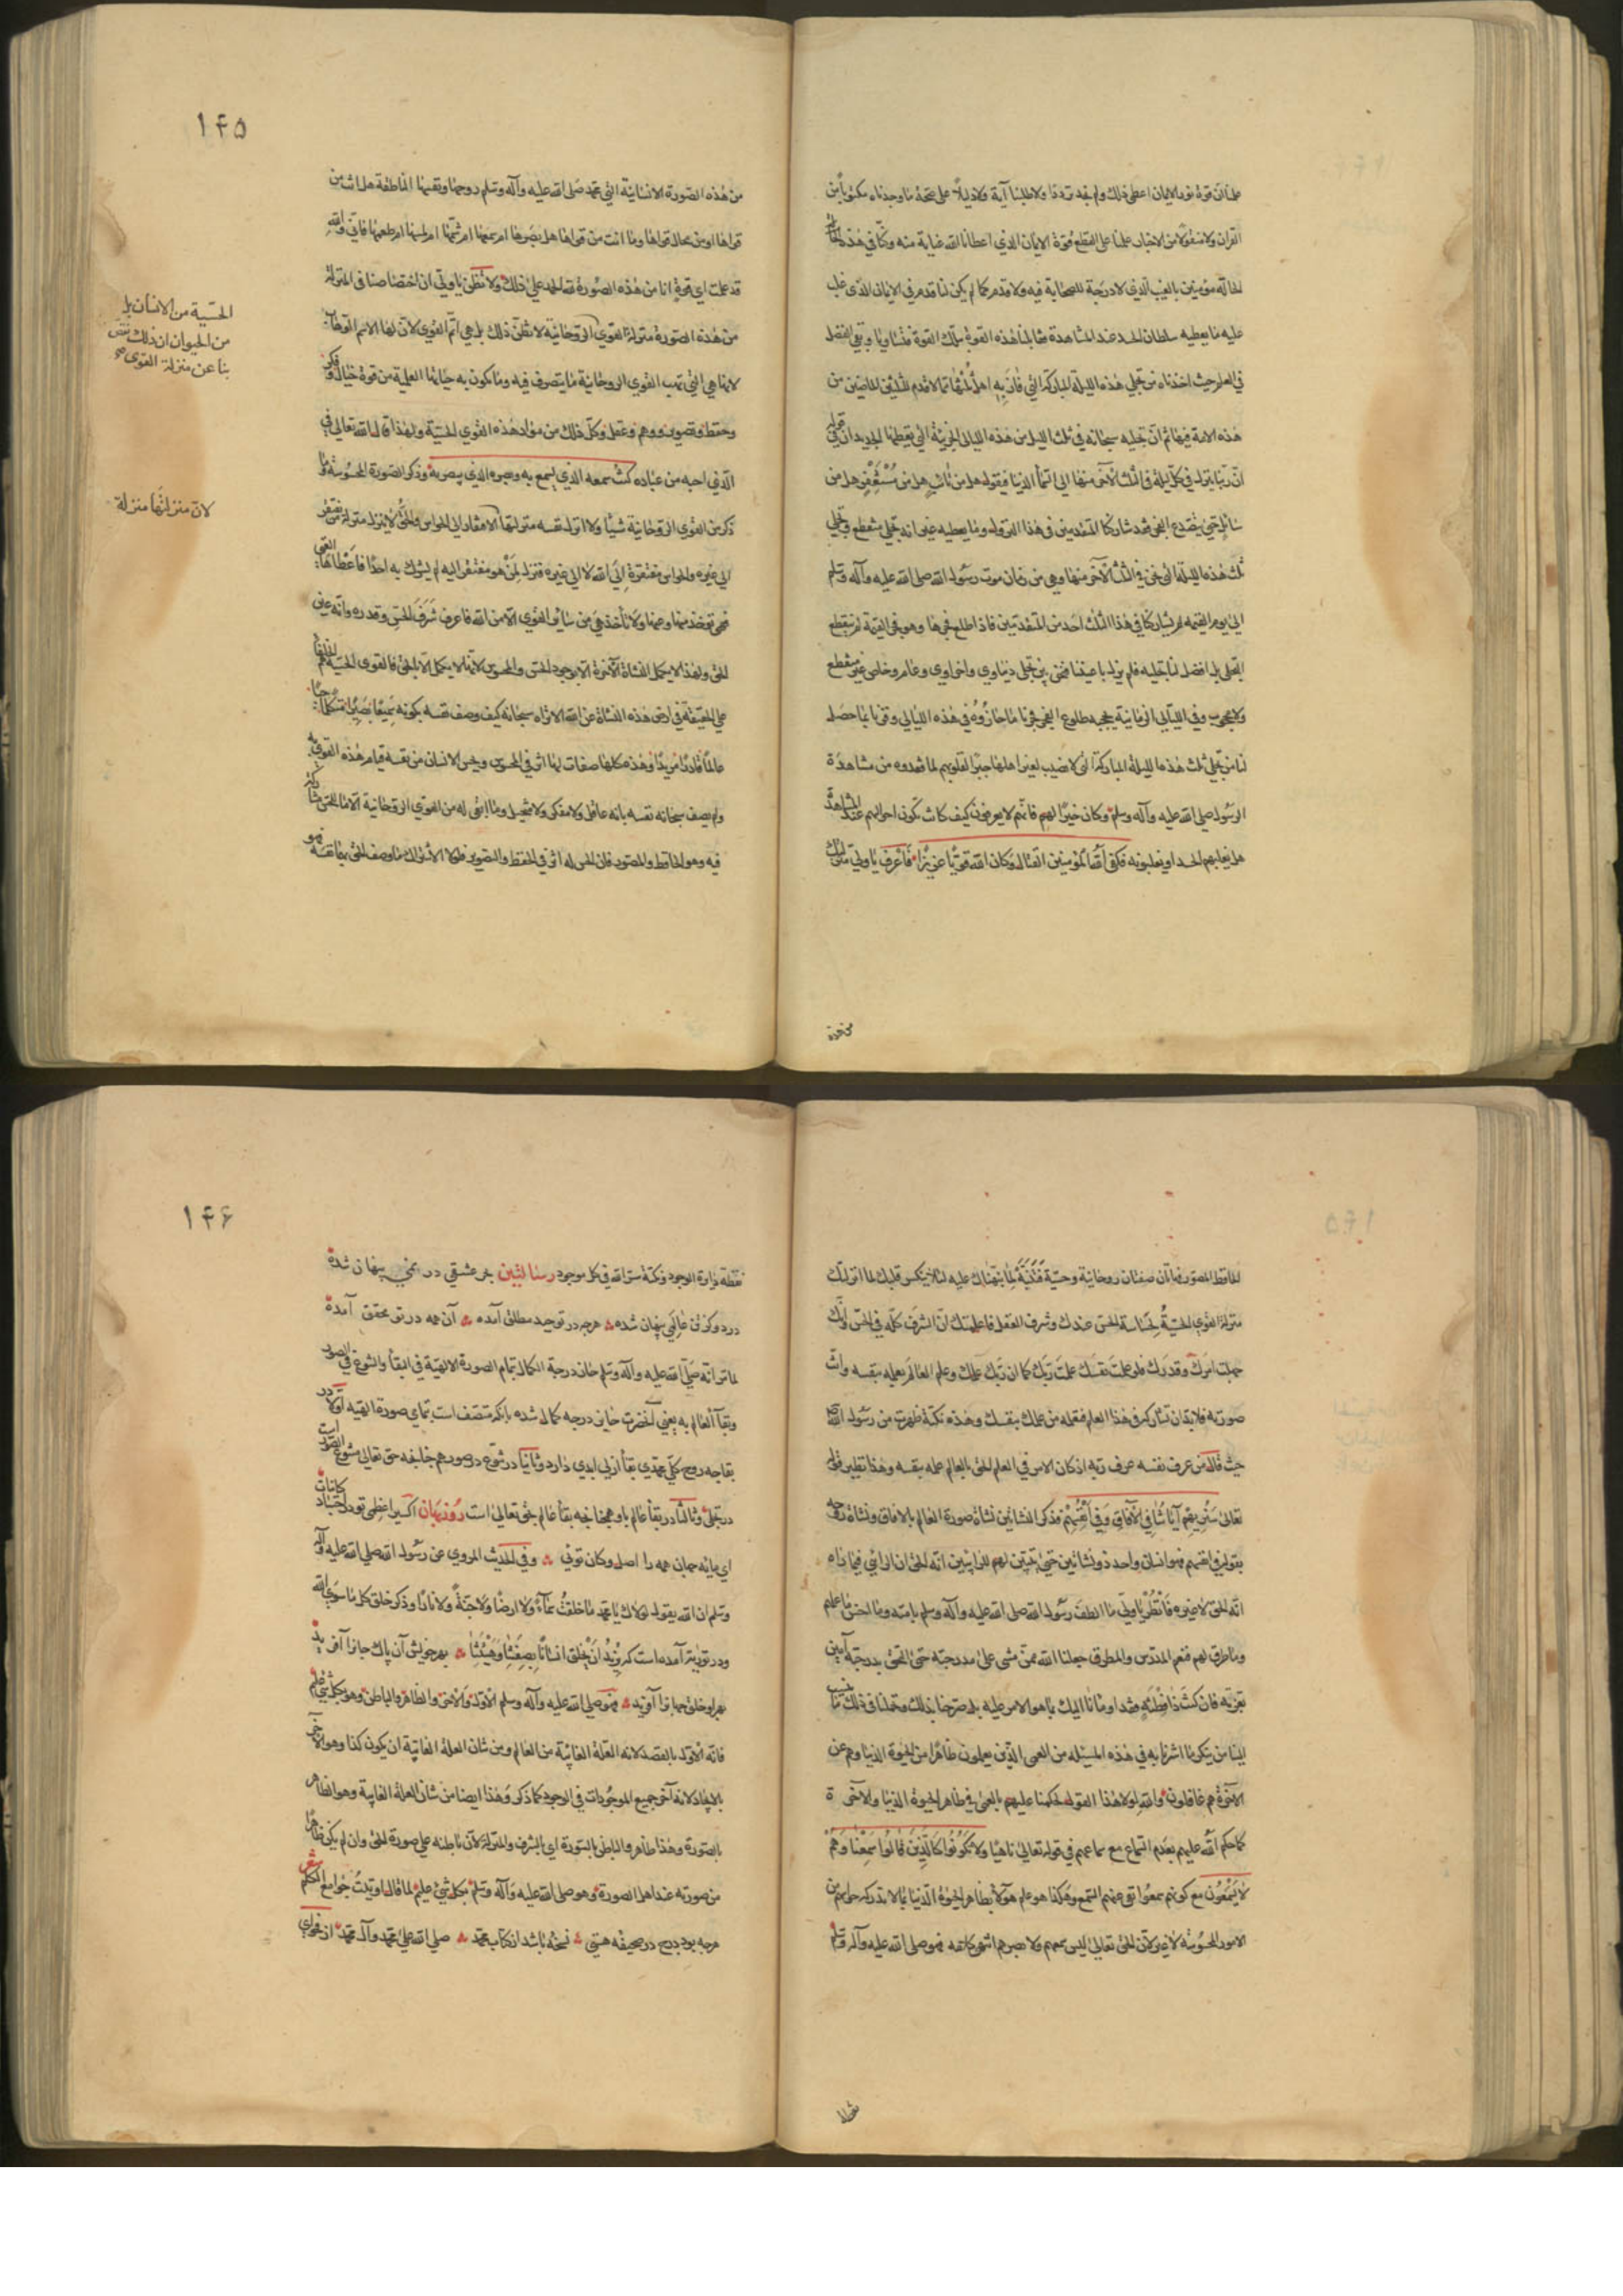 علمنا ان قوة نور الايمان اعطى ذلك ولم نجد ترددا ولا طلبنا آية ولا دليلاً على صحة ما وجدناه مكتوبا من
القرآن ولا منقولا من الاخبار علمنا على القطع قوة الايمان الذي اعطانا الله عناية منه وكنا في هذه
الحالة مؤمنين بالغيب الذي لا درجة للصحابة فيه ولا قدم كما لم يكن لنا قدم في الايمان الذي غلب
عليه ما يعطيه سلطان الحسد عند المشاهدة فقابلنا هذه القوة بتلك القوة فتساويا وبقي الفضل
في العلم حيث اخذناه من تجلي هذه الليلة المباركة التي فاز به اهل ثلثها مما لا قدم للثلثين الماضيين من
هذه الامة فيها ثم ان تجليه سبحانه في ثلث الليل من هذه الليالي الجزئية التي يعطيها الجديدان في قوله
ان ربنا ينزل في كل ليلة في الثلث الآخر منها الى السماء الدنيا فيقول هل من تائب هل من مستغفر هل من
سائل حتى ينصدع الفجر فقد شاركنا المتقدمين في هذا النزول وما يعطيه غير انه تجلي منقطع وتجلي
ثلث هذه الليلة التي نحن في الثلث الآخر منها وهي من زمان موت رسول الله صلى الله عليه وآله وسلم
الى يوم القيمة لم يشاركنا في هذا الثلث احد من المتقدمين فاذا طلع فجرها وهو فجر القيمة لم ينقطع
التجلي بل افضل لنا تجليه فلم يزل باعيننا فنحن بين تجلي دنياوي واخراوي وعام وخاص غير منقطع
ولا محجوب وفي الليالي الزمانية يحجبه طلوع الفجر فزنا ما حازوه في هذه الليالي وفزنا بما حصل
لنا من تجلي ثلث هذه الليلة المباركة التي لا نصيب لغير اهلها جبرا لقلوبهم لما فقدوه من مشاهدة
الرسول صلى الله عليه وآله وسلم وكان خيرا لهم فانهم لا يعرفون كيف كانت تكون احوالهم عند المشاهدة
هل يغلبهم الحسد او يغلبونه فكفى الله المؤمنين القتال وكان الله قويا عزيزا فاعرف يا وليّ منزلتك
من هذه الصورة الانسانية التي محمد صلى الله عليه وآله وسلم روحها ونفسها الناطقة هل انت من
قواها او من محال قواها وما انت من قواها هل بصرها ام سمعها ام شمها ام لمسها ام طعمها فاني والله
قد علمت اي قوة انا من هذه الصورة لله الحمد على ذلك ولا تظن يا وليّ ان اختصاصنا في المنزلة
من هذه الصورة منزلة القوى الروحانية لا تظن ذلك بل هي اتم القوى لان لها الاسم الوهاب
لانها هي التي تهب القوى الروحانية ما يتصرف فيه وما يكون به حياتها العلية من قوة خيال وفكر
وحفظ وتصوير ووهم وعقل وكل ذلك من مواد هذه القوى الحسية ولهذا قال الله تعالى في
الذي احبه من عباده كنت سمعه الذي يسمع به وبصره الذي يبصر به وذكر الصورة المحسوسة وما
ذكر من القوى الروحانية شيئا ولا انزل نفسه منزلتها الافتقار الى الحواس والحق لا ينزل منزلة من يفتقر
الى غيره والحواس مفتقرة الى الله لا الى غيره فنزل لمن هو مفتقر اليه لم يشرك به احدا فاعطاها الغنى
فهي تؤخذ منها وعنها ولا تأخذ هي من سائر القوى الا من الله فاعرف شرف الحس وقدره وانه عين
الحق ولهذا لا يكمل النشأة الآخرة الا بوجود الحس والمحسوس لانها لا يكمل الا بالحق فالقوى الحسية هم الخلفا
على الحقيقة في ارض هذه النشاة عن الله الا تراه سبحانه كيف وصف نفسه بكونه سميعا بصيرا متكلما حيا
عالما قادرا مريدا وهذه كلها صفات لها اثر في المحسوس ويحس الانسان من نفسه قيام هذه القوى به
ولم يصف سبحانه نفسه بانه عاقل ولا مفكر ولا متخيل وما ابقى له من القوى الروحانية الا ما للحس مشاركة
فيه وهو الحافظ والمصور فان الحس له اثر في الحفظ والتصوير فلولا الاشتراك ما وصف الحق بهما نفسه فهو
الحسية من الانسان بل
من الحيوان ان ذلك نقص
بنا عن منزلة القوى صح
لان منزلتها منزلة
١۴۵
الحافظ المصور فهاتان صفتان روحانية وحسية فتنبه لما نبهناك عليه لئلا ينكسر قلبك لما انزلتك
منزلة القوى الحسية لخساسة الحس عندك وشرف العقل فاعلمتك ان الشرف كله في الحس وانك
جهلت امرك وقدرك فلو علمت نفسك علمت ربك كما ان ربك علمك وعلم العالم بعلمه بنفسه وانت
صورته فلا بد ان تشاركه في هذا العلم فتعلمه من علمك بنفسك وهذه نكتة ظهرت من رسول الله
حيث قال من عرف نفسه عرف ربه اذ كان الامر في العلم الحق بالعالم علمه بنفسه وهذا نظير قوله
تعالى سنريهم آياتنا في الآفاق وفي انفسهم فذكر النشأتين نشأة صورة العالم بالافاق ونشاة روحه
بقوله في انفسهم فهو انسان واحد ذو نشأتين حتى يتبين لهم للرائيين انه الحق ان الرائي فيما رآه
انه الحق لا غيره فانظر يا وليّ ما الطف رسول الله صلى الله عليه وآله وسلم بامته وما احسن ما علم
وما طرق لهم فنعم المدرس والمطرق جعلنا الله ممن مشى على مدرجته حتى التحق بدرجته آمين
بعزته فان كنت ذا فطنة فقد اومأنا اليك بما هو الامر عليه بل صرحنا بذلك وتحملنا في ذلك ما ينسب
الينا من ينكر ما اشرنا به في هذه المسئله من العمى الذين يعلمون ظاهرا من الحيوة الدنيا وهم عن
الآخرة هم غافلون والله لولا هذا القول لحكمنا عليهم بالعمى في ظاهر الحيوة الدنيا والآخرة
كما حكم الله عليهم بعدم السماع مع سماعهم في قوله تعالى ناهيا ولا تكونوا كالذين قالوا سمعنا وهم
لا يسمعون مع كونهم سمعوا نفى عنهم السمع وهكذا هو علم هؤلاء بظاهر الحيوة الدنيا بما لا يدركه حواسهم من
الامور المحسوسة لا غير لان الحق تعالى ليس سمعهم ولا بصرهم انتهى كلامه فهو صلى الله عليه وآله وسلم
نقطه دايرة الوجود ونكتة سر الله في كل موجود رسنا لثين بحر عشقي در نمي پنهان شده
در دو كز تن عالمي پنهان شده هر چه در توحيد مطلق آمده آن همه در تو محقق آمده
لما تراته صلى الله عليه وآله وسلم حاز درجة الكمال بتمام الصورة الالهية في البقأ والتنوع في الصور
وبقآء العالم به يعني آنحضرت حايز درجه كمال شده بآنكه متصف است بتمامي صورة الهيه اولا در
بقا چه روح كلي محمدي بقأ ازلي ابدي دارد وثانيا در تنوع در صور هم خليفه حق تعالى متنوع الصور است
در تجلي وثالثا در بقأ عالم باو همچنانچه بقأ عالم بحق تعالى است روزبهان اكسير اعظمى تو در اجساد كاينات
اي مايه جهان همه را اصل وكان تويي وفي الحديث المروي عن رسول الله صلى الله عليه وآله
وسلم ان الله يقول لولاك يا محمد ما خلقت سمآء ولا ارضا ولا جنة ولا نارا وذكر خلق كل ما سوى الله
ودر توريته آمده است كه نريد ان نخلق انسانا بصفتنا وهيئتنا بهر خويش آن پاك جانرا آفريد
بهر او خلق جهانرا آفريد فهو صلى الله عليه وآله وسلم الاول والآخر والظاهر والباطن وهو بكل شيء عليم
فانه الاول بالقصد لانه العلة الغائية من العالم ومن شان العلة الغائية ان يكون كذا وهو الآخر
بالايجاد لانه آخر جميع الموجودات في الوجود كما ذكر وهذا ايضا من شان العلة الغاييه وهو الظاهر
بالصورة وهذا ظاهر والباطن بالسورة اي بالشرف والمنزلة لان باطنه على صورة الحق وان لم يكن ظاهرا
من صورته عند اهل الصورة وهو صلى الله عليه وآله وسلم بكل شيء عليم لما قال اوتيت جوامع الكلم شعر
هر چه بود درج در صحيفه هستي نسخه باشد از كتاب محمد صلى الله على محمد وآل محمد از فحواي
١۴۶